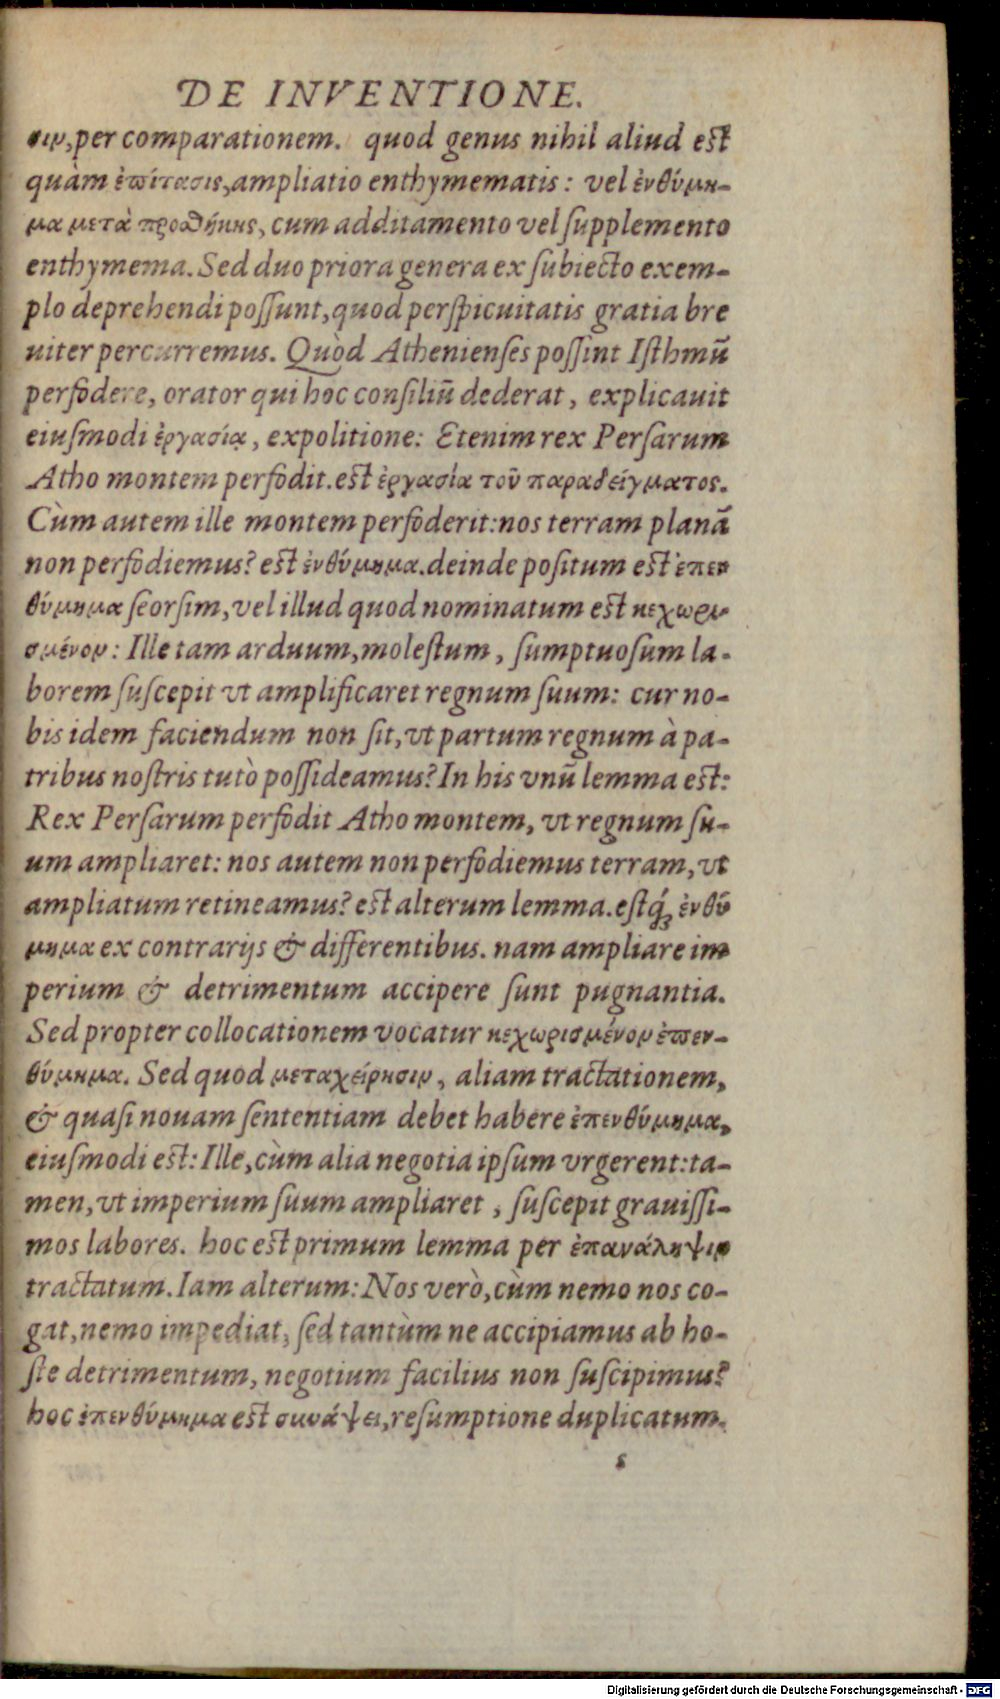 DE INVENTIONE.
σιν, per comparationem. quod genus nihil aliud est
quàm ἐπίτασις, ampliatio enthymematis: vel ἐνθύμη-
μα μετὰ προσθήκης, cum additamento vel supplemento
enthymema. Sed duo priora genera ex subiecto exem-
plo deprehendi possunt, quod perspicuitatis gratia bre
uiter percurremus. Quòd Athenienses possint Isthmū
perfodere, orator qui hoc consiliū dederat, explicauit
eiusmodi ἐργασίᾳ, expolitione: Etenim rex Persarum
Atho montem perfodit. est ἐργασία τοῦ παραδείγματος.
Cùm autem ille montem perfoderit: nos terram planā
non perfodiemus? est ἐνθύμημα. deinde positum est ἐπεν
θύμημα seorsim, vel illud quod nominatum est κεχωρι-
σμένον: Ille tam arduum, molestum, sumptuosum la-
borem suscepit vt amplificaret regnum suum: cur no-
bis idem faciendum non sit, vt partum regnum à pa-
tribus nostris tutò possideamus? In his vnū lemma est:
Rex Persarum perfodit Atho montem, vt regnum su-
um ampliaret: nos autem non perfodiemus terram, vt
ampliatum retineamus? est alterum lemma. estq́; ἐνθύ
μημα ex contrarijs & differentibus. nam ampliare im
perium & detrimentum accipere sunt pugnantia.
Sed propter collocationem vocatur κεχωρισμένον ἐπεν-
θύμημα. Sed quod μεταχείρησιν, aliam tractationem,
& quasi nouam sententiam debet habere ἐπενθύμημα,
eiusmodi est: Ille, cùm alia negotia ipsum vrgerent: ta-
men, vt imperium suum ampliaret, suscepit grauissi-
mos labores. hoc est primum lemma per ἐπανάληψιν
tractatum. Iam alterum: Nos verò, cùm nemo nos co-
gat, nemo impediat, sed tantùm ne accipiamus ab ho-
ste detrimentum, negotium facilius non suscipimus?
hoc ἐπενθύμημα est συνάψει, resumptione duplicatum.
s
Digitalisierung gefördert durch die Deutsche Forschungsgemeinschaft - DFG